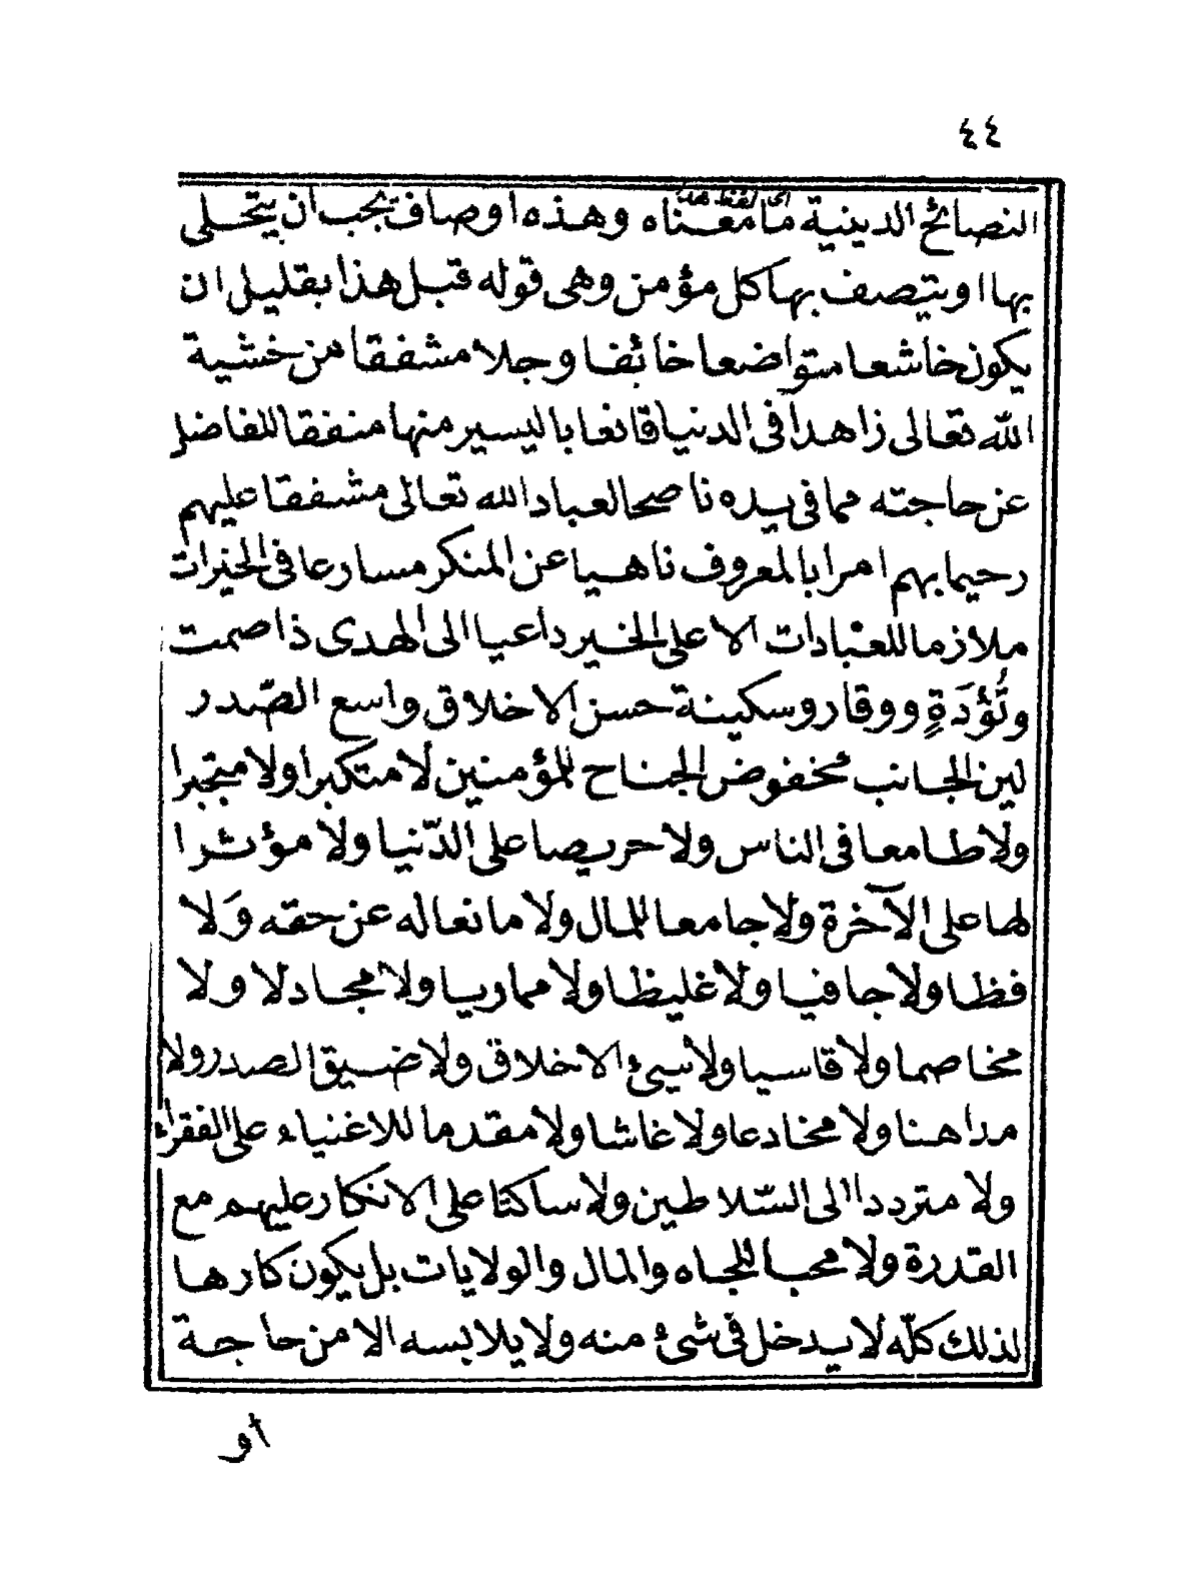 ٤٤
النصائح الدينية ما معناه وهذه اوصاف يجب ان يتحلى
بها او يتصف بها كل مؤمن وهى قوله قبل هذا بقليل ان
يكون خاشعا متواضعا خائفا وجلا مشفقا من خشية
الله تعالى زاهدا فى الدنيا قانعا باليسير منها منفقا للفاضل
عن حاجته مما فى يده ناصحا لعباد الله تعالى مشفقا عليهم
رحيما بهم امرا بالمعروف ناهيا عن المنكر مسارعا فى الخيرات
ملازما للعبادات الا على الخير داعيا الى الهدى ذا صمت
وتُؤدَةٍ ووقار وسكينة حسن الاخلاق واسع الصّدر
لين الجانب مخفوض الجناح للمؤمنين لا متكبرا ولا متجبرا
ولا طامعا فى الناس ولا حريصا على الدّنيا ولا مؤثرا
لها على الآخرة ولا جامعا للمال ولا مانعا له عن حقه وَلا
فظا ولا جافيا ولا غليظا ولا مماريا ولا مجادلا ولا
مخاصما ولا قاسيا ولا سيئ الاخلاق ولا ضيق الصدر ولا
مداهنا ولا مخادعا ولا غاشا ولا مقدما للاغنياء على الفقراء
ولا مترددا الى السّلاطين ولا ساكتا على الانكار عليهم مع
القدرة ولا محبا للجاه والمال والولايات بل يكون كارها
لذلك كلّه لا يدخل فى شئ منه ولا يلابسه الا من حاجة
او